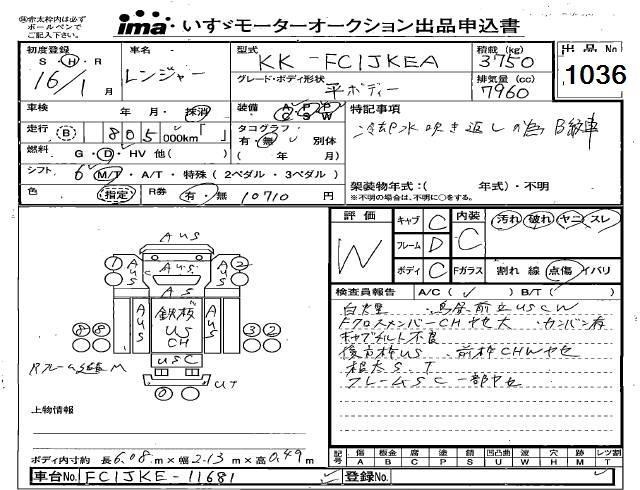 ㊟赤太枠内は必ず
ボールペンで
ご記入下さい。
ima・いすゞモーターオークション出品申込書
初度登録
S・H・R
16/1月
車名
レンジャー
型式
KK-FC1JKEA
積載(kg)
3750
出品No
1036
グレード・ボディ形状
平ボディー
排気量(cc)
7960
車検
年 月・抹消
装備
A/C P/S P/W
特記事項
冷却水吹き返しの為B級車
走行
B 805,000km「 」
タコグラフ
有・無 別体
( 年 月)
燃料
G・D・HV 他( )
シフト
6 M/T・A/T・特殊(2ペダル・3ペダル)
架装物年式:( 年式)・不明
※不明の場合は、不明に○をする。
色
指定
R券
有・無 10710円
評価
W
キャブ C
フレーム D
ボディ C
内装
C
汚れ 破れ ヤニ スレ
Fガラス
割れ 線 点傷 イバリ
AUS
1 AUS 2
AUS AUS
AS AS AS
AUS 鉄板 AUS
US
CH
88 32
USC
Rフレーム M
0 UT
検査員報告 A/C(✓) B/T( )
鳥居前立USCW
FクロスメンバーCHヤセ大 カンバン有
キャブチルト不良
後方枠US 前枠CHWヤセ
根太S、T
フレームSC一部ヤセ
上物情報
ボディ内寸約 長6.08m×幅2.13m×高0.49m
記号 傷 板金 腐 塗 錆 凹凸曲 波 穴 跡 レツ割
A B C P S U W H M T
車台No. FC1JKE-11681
登録No.